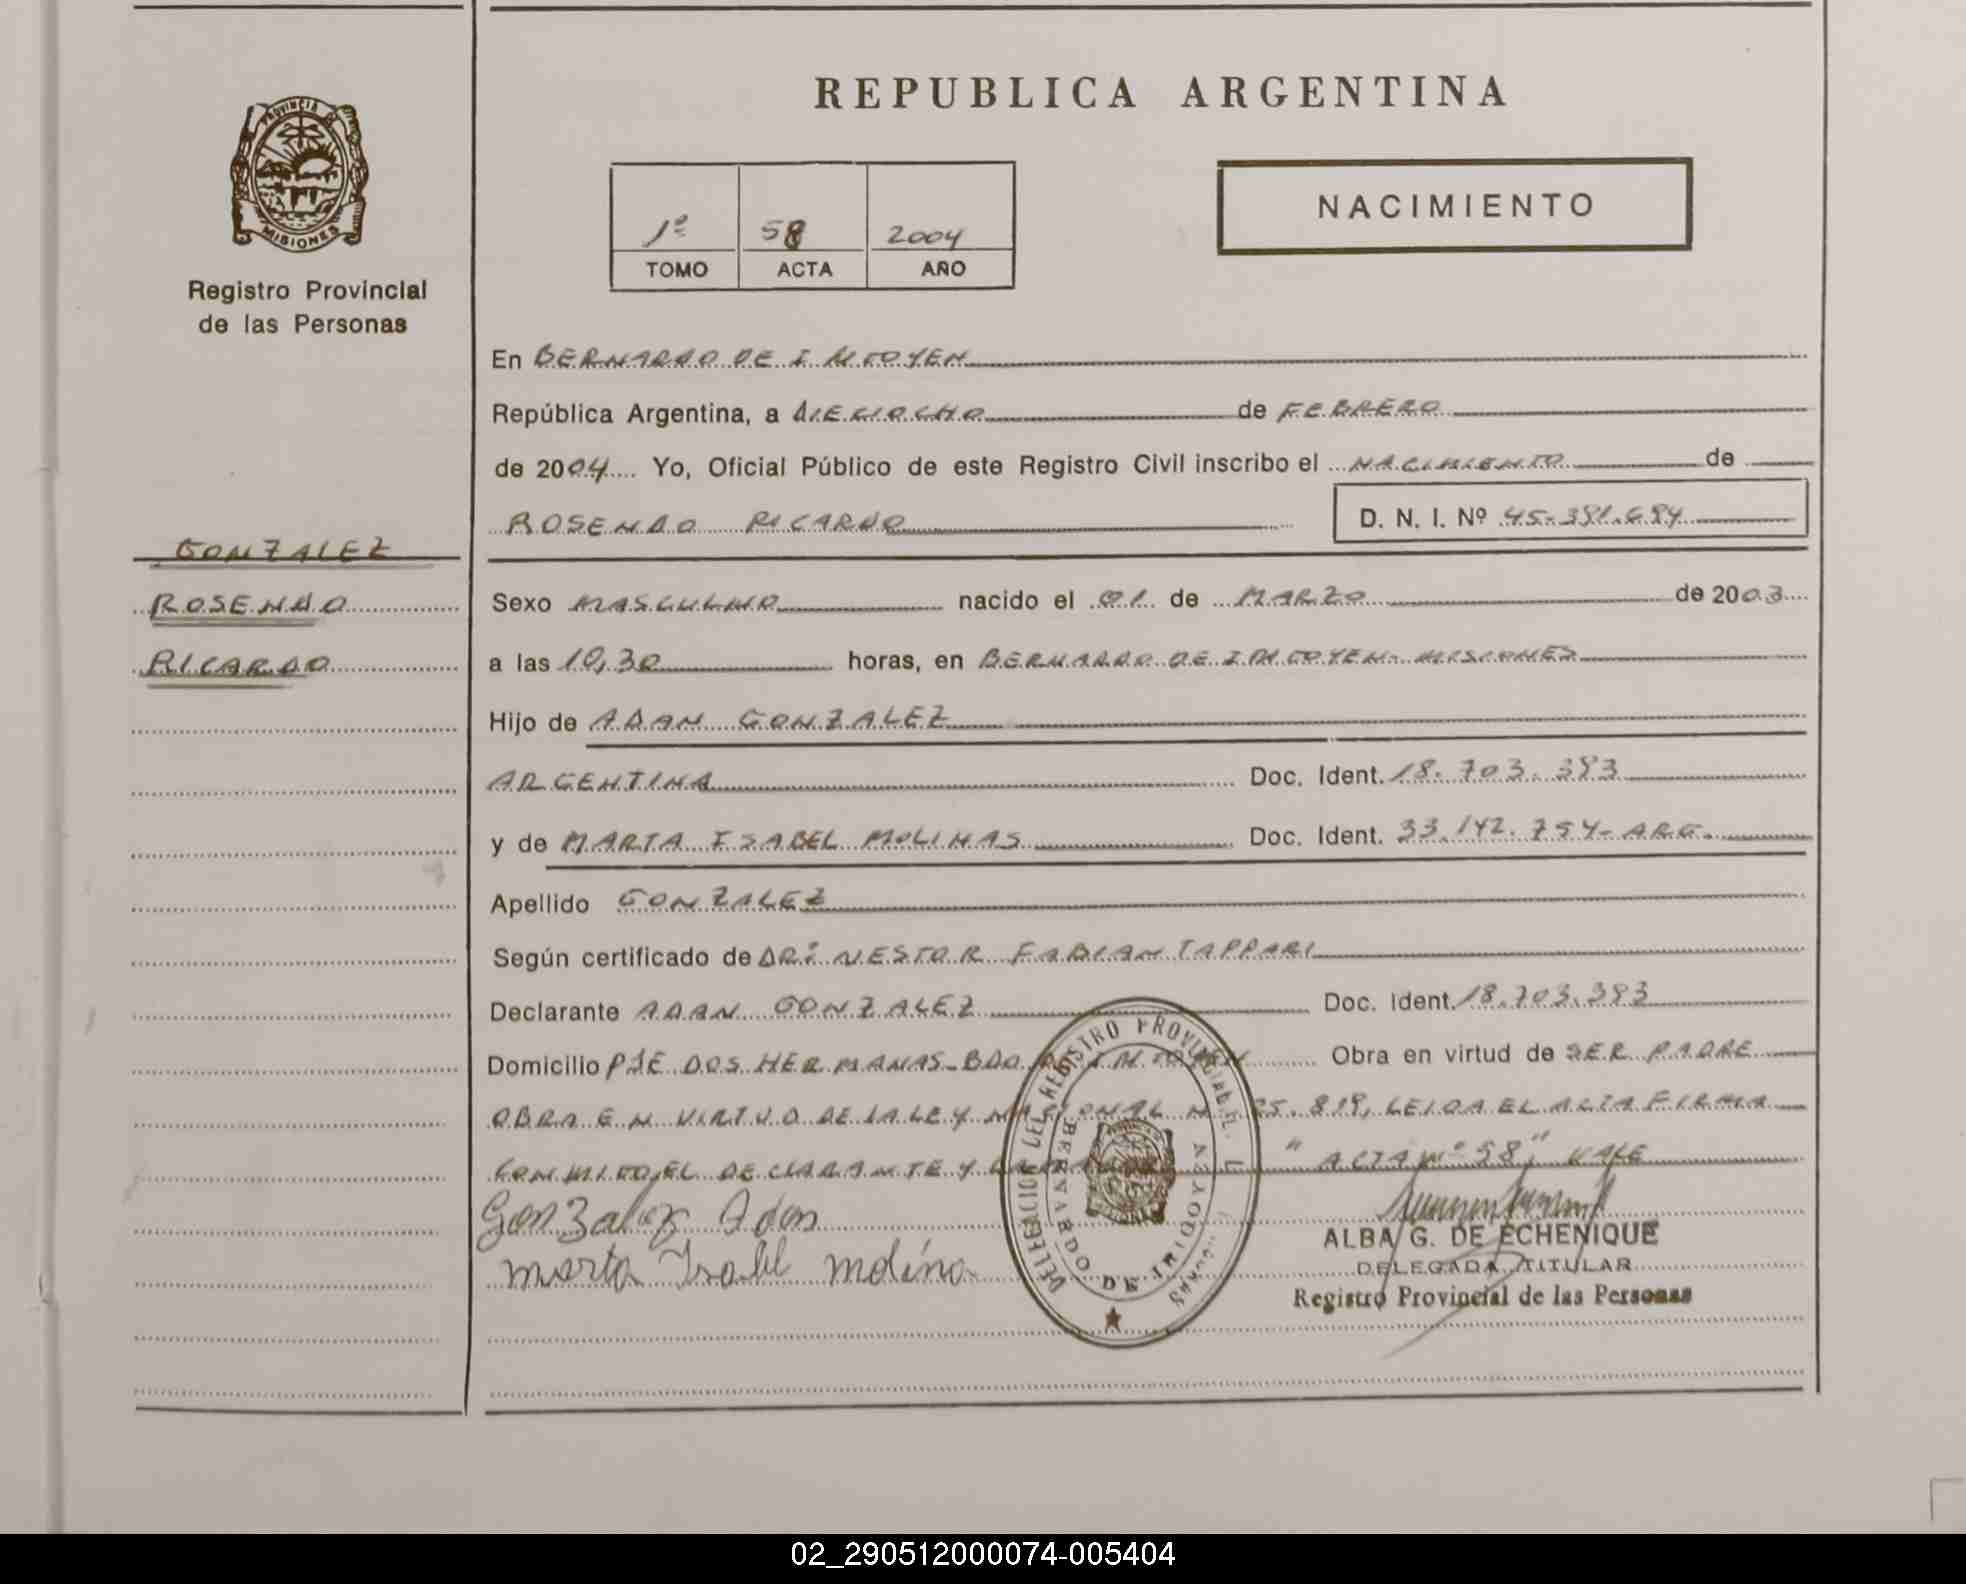 REPUBLICA ARGENTINA
PROVINCIA DE
MISIONES
Registro Provincial
de las Personas
1º 58 2004
TOMO ACTA AÑO
NACIMIENTO
En BERNARDO DE IRIGOYEN
República Argentina, a DIECIOCHO de FEBRERO
de 2004 Yo, Oficial Público de este Registro Civil inscribo el NACIMIENTO de
ROSENDO RICARDO D. N. I. Nº 45.391.694
GONZALEZ
ROSENDO
RICARDO
Sexo MASCULINO nacido el 01 de MARZO de 2003
a las 10,30 horas, en BERNARDO DE IRIGOYEN- MISIONES
Hijo de ADAN GONZALEZ
ARGENTINA Doc. Ident. 18.703.393
y de MARTA ISABEL MOLINAS Doc. Ident. 33.142.754- ARG.
Apellido GONZALEZ
Según certificado de DR: NESTOR FABIAN TAPPARI
Declarante ADAN GONZALEZ Doc. Ident. 18.703.393
Domicilio PJE DOS HERMANAS-BDO DE IRIGOYEN Obra en virtud de SER PADRE
OBRA EN VIRTUD DE LA LEY NACIONAL Nº 25.819, LEIDA EL ACTA FIRMA
CONMIGO, EL DECLARANTE Y "ACTA Nº 58" VALE
Gonzalez Adan
Marta Isabel Molina
DELEGACION DEL REGISTRO PROVINCIAL
BERNARDO DE IRIGOYEN
ALBA G. DE ECHENIQUE
DELEGADA TITULAR
Registro Provincial de las Personas
02_290512000074-005404